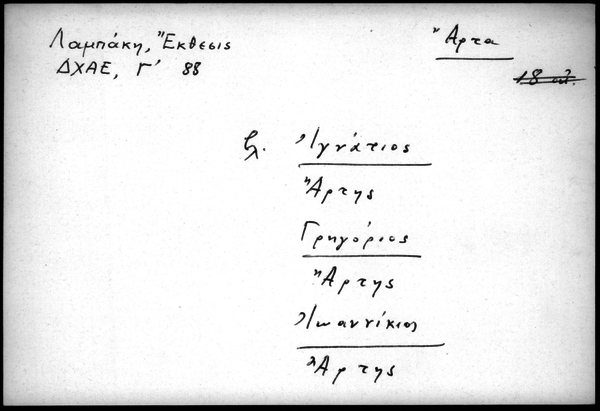 Λαμπάκη, Ἔκθεσις
ΔΧΑΕ, Γ' 88
Ἄρτα
18 αἰ.
βλ. Ἰγνάτιος
Ἄρτης
Γρηγόριος
Ἄρτης
Ἰωαννίκιος
Ἄρτης